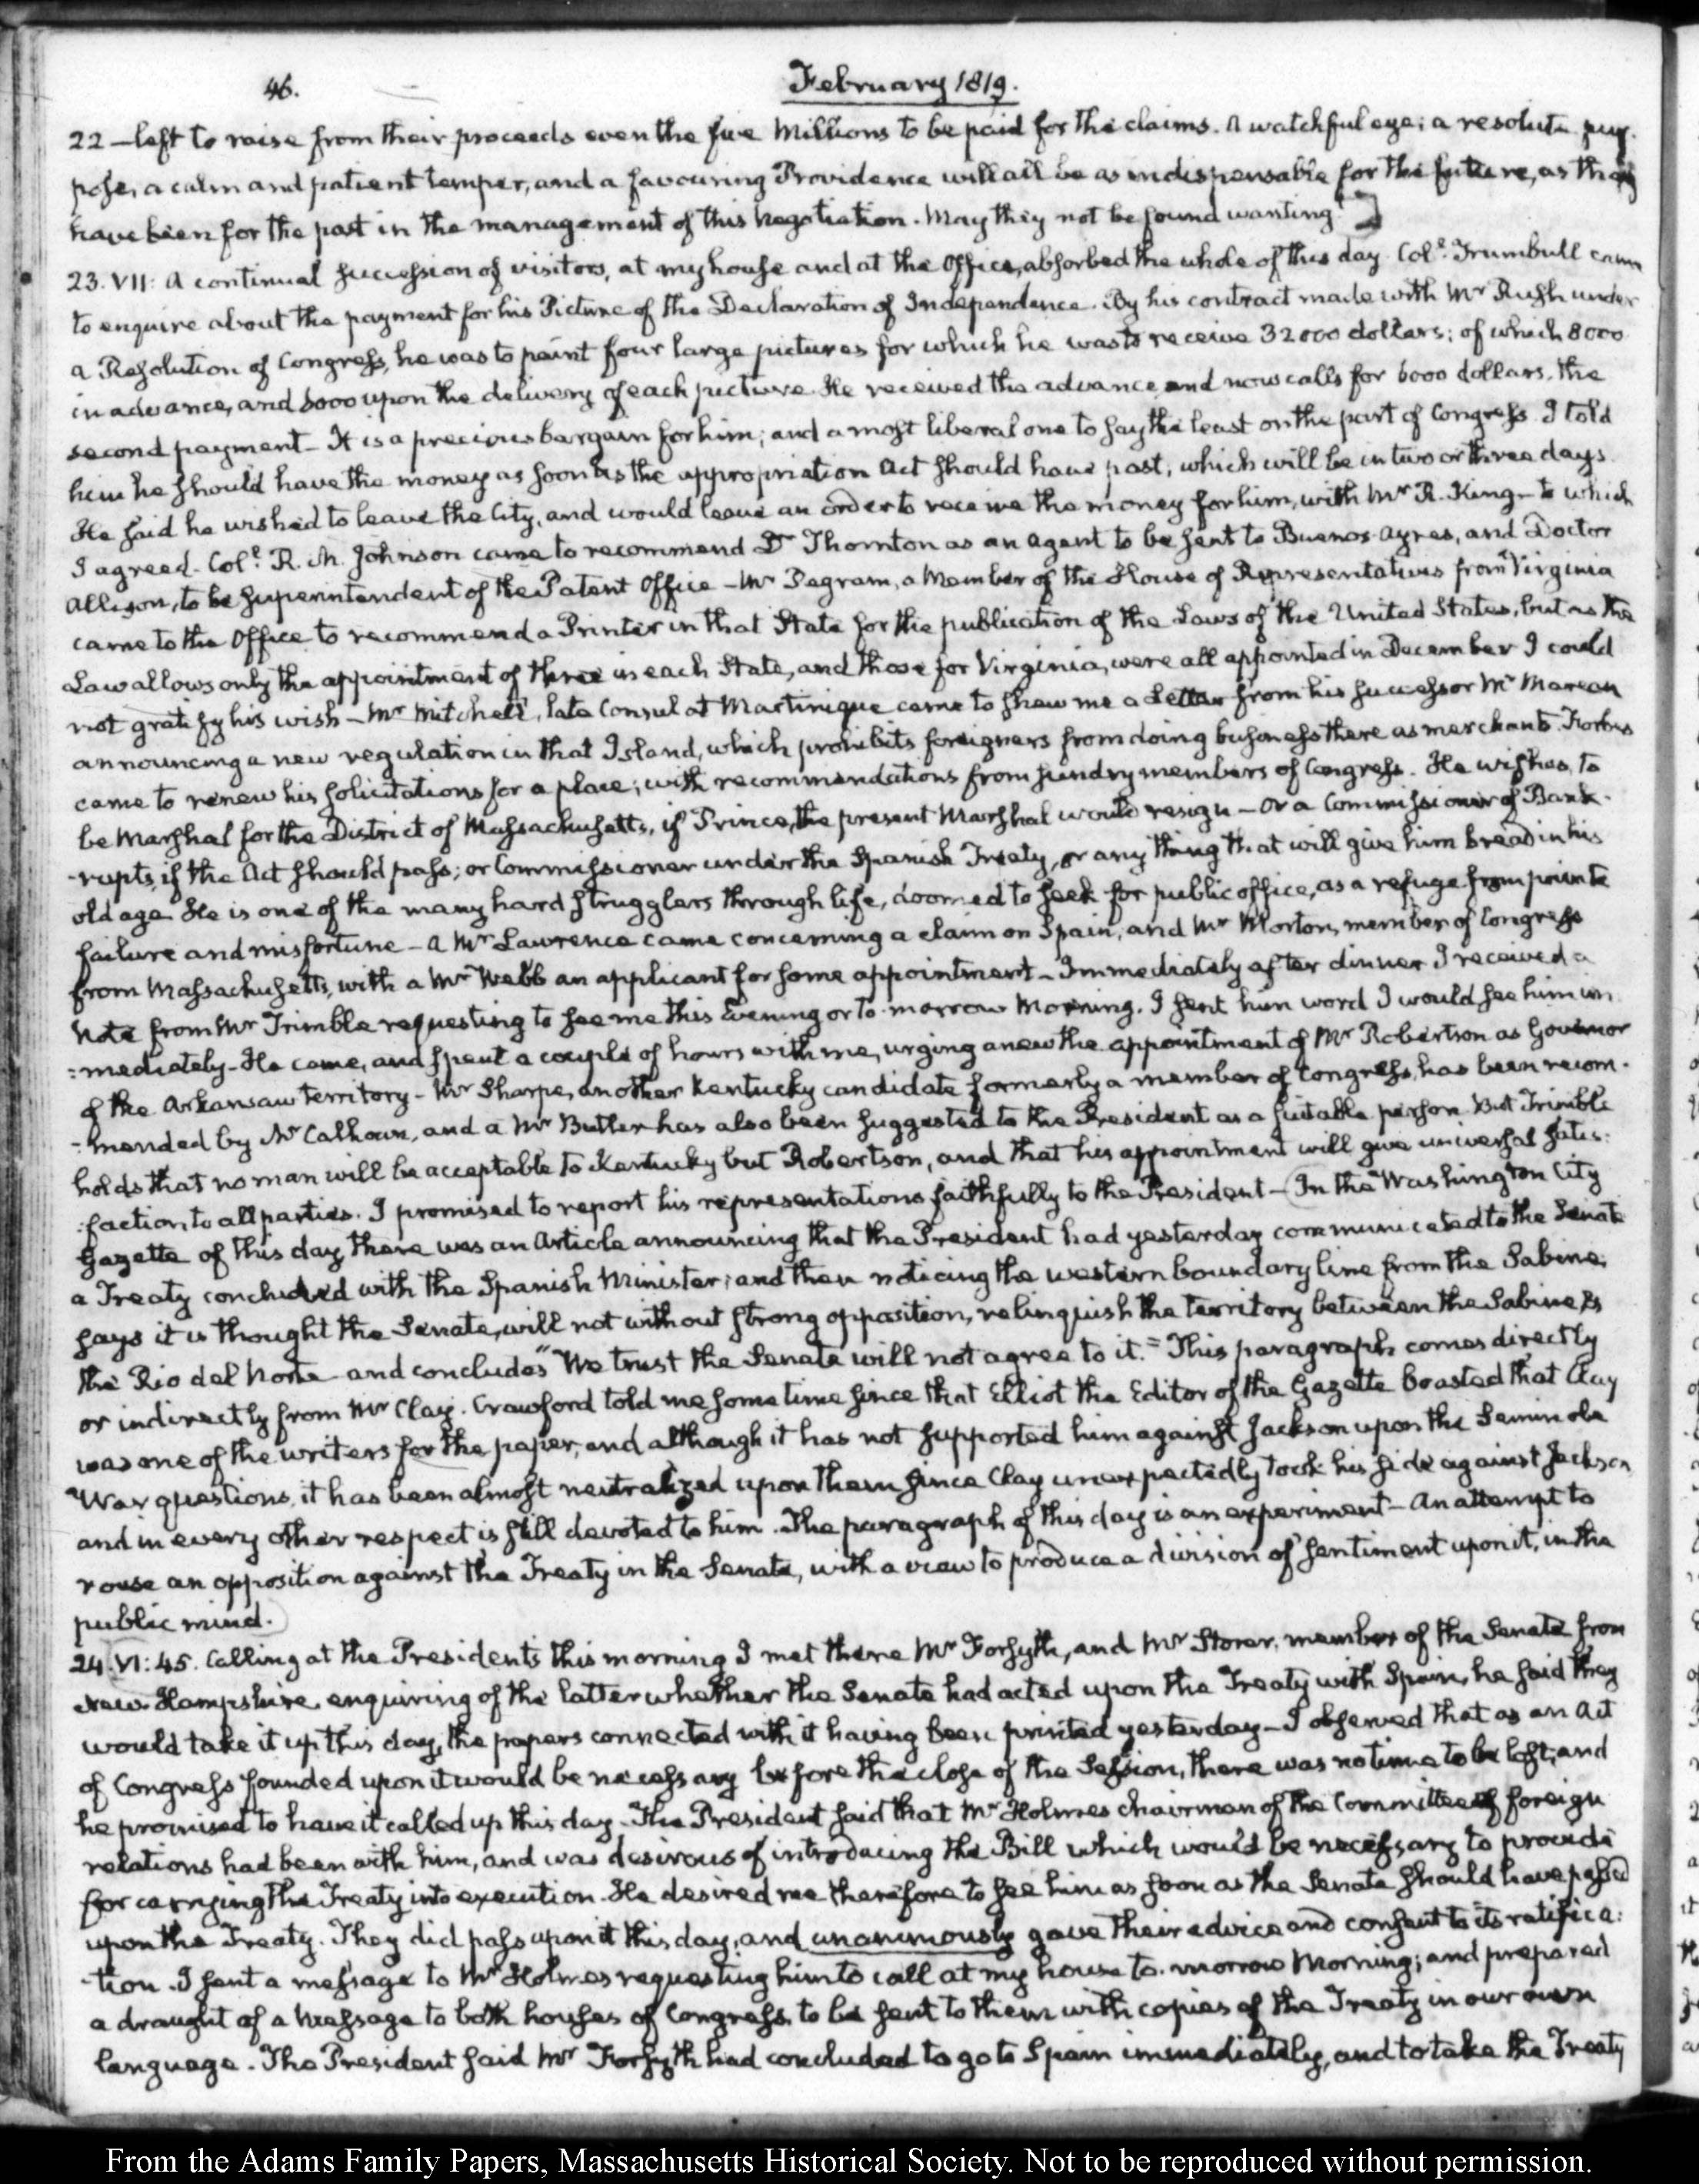 46.
February 1819.
22 — left to raise from their proceeds even the five Millions to be paid for the claims. A watchful eye; a resolute pur-
pose, a calm and patient temper, and a favouring Providence will all be as indispensable for the future, as they
have been for the past in the management of this Negotiation. May they not be found wanting!]
23. VII: A continual succession of visitors, at my house and at the Office, absorbed the whole of this day. Coll. Trumbull came
to enquire about the payment for his Picture of the Declaration of Independence. By his contract made with Mr Rush under
a Resolution of Congress, he was to paint four large pictures for which he was to receive 32000 dollars; of which 8000
in advance, and 6000 upon the delivery of each picture. He received the advance and now calls for 6000 dollars, the
second payment — It is a precious bargain for him; and a most liberal one to say the least on the part of Congress. I told
him he should have the money as soon as the appropriation Act should have past, which will be in two or three days.
He said he wished to leave the City, and would leave an order to receive the money for him, with Mr R. King — to which
I agreed. Coll. R. M. Johnson came to recommend Dr Thornton as an agent to be sent to Buenos-Ayres, and Doctor
Allison, to be Superintendent of the Patent Office — Mr Pegram, a Member of the House of Representatives from Virginia
came to the Office to recommend a Printer in that State for the publication of the Laws of the United States, but as the
Law allows only the appointment of three in each State, and those for Virginia, were all appointed in December I could
not gratify his wish — Mr Mitchell, late Consul at Martinique came to shew me a Letter from his successor Mr Marcan
announcing a new regulation in that Island, which prohibits foreigners from doing business there as merchants. Forbes
came to renew his solicitations for a place; with recommendations from sundry members of Congress. He wishes, to
be Marshal for the District of Massachusetts, if Prince, the present Marshal would resign — Or a Commissioner of Bank-
-rupts, if the Act should pass; or Commissioner under the Spanish Treaty, or any thing that will give him bread in his
old age. He is one of the many hard strugglers through life, doomed to seek for public office, as a refuge from private
failure and misfortune — A Mr Lawrence came concerning a claim on Spain, and Mr Morton, member of Congress
from Massachusetts, with a Mr Webb an applicant for some appointment — Immediately after dinner I received a
Note from Mr Trimble requesting to see me this Evening or to-morrow Morning. I sent him word I would see him im
=mediately — He came, and spent a couple of hours with me, urging anew the appointment of Mr Robertson as Governor
of the Arkansaw Territory — Mr Sharpe, another Kentucky candidate formerly a member of Congress, has been recom-
=mended by Mr Calhoun, and a Mr Butler has also been suggested to the President as a suitable person. But Trimble
holds that no man will be acceptable to Kentucky but Robertson, and that his appointment will give universal satis:
:faction to all parties. I promised to report his representations faithfully to the President — (In the Washington City
Gazette of this day there was an Article announcing that the President had yesterday communicated to the Senate
a Treaty concluded with the Spanish Minister; and then noticing the western boundary line from the Sabine,
says it is thought the Senate, will not without strong opposition, relinquish the territory between the Sabine &
the Rio del Norte — and concludes "We trust the Senate will not agree to it." This paragraph comes directly
or indirectly from Mr Clay. Crawford told me some time since that Elliot the Editor of the Gazette boasted that Clay
was one of the writers for the paper, and although it has not supported him against Jackson upon the Seminole
War questions, it has been almost neutralized upon them since Clay unexpectedly took his side against Jackson
and in every other respect is still devoted to him. The paragraph of this day is an experiment — An attempt to
rouse an opposition against the Treaty in the Senate, with a view to produce a division of sentiment upon it, in the
public mind.)
24. VI:45. Calling at the President's this morning I met there Mr Forsyth, and Mr Storer, member of the Senate from
New-Hampshire, enquiring of the latter whether the Senate had acted upon the Treaty with Spain, he said they
would take it up this day, the papers connected with it having been printed yesterday — I observed that as an Act
of Congress founded upon it would be necessary before the close of the Session, there was no time to be lost; and
he promised to have it called up this day — The President said that Mr Holmes chairman of the Committee of foreign
relations had been with him, and was desirous of introducing the Bill which would be necessary to provide
for carrying the Treaty into execution. He desired me therefore to see him as soon as the Senate should have passed
upon the Treaty. They did pass upon it this day, and unanimously gave their advice and consent to its ratifica:
-tion. I sent a message to Mr Holmes requesting him to call at my house to-morrow Morning; and prepared
a draught of a Message to both houses of Congress, to be sent to them with copies of the Treaty in our own
language. The President said Mr Forsyth had concluded to go to Spain immediately, and to take the Treaty
From the Adams Family Papers, Massachusetts Historical Society. Not to be reproduced without permission.